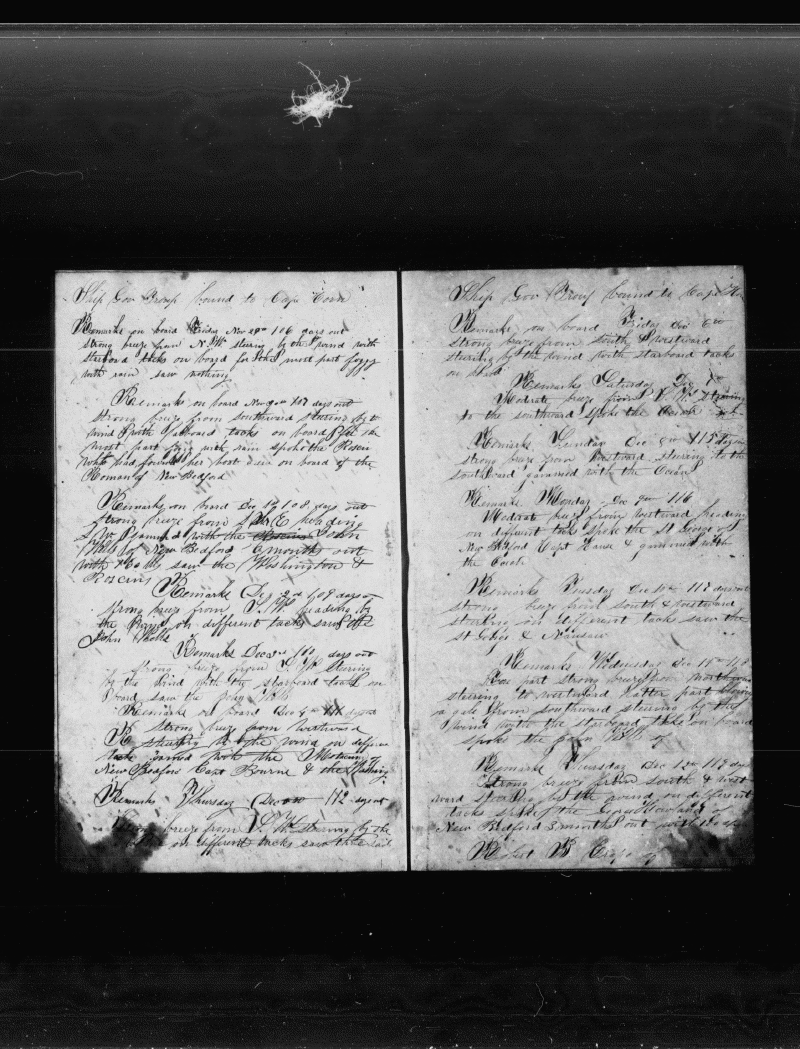 Ship Gov Troup bound to Cape Horn
Remarks on board Friday Nov 29th 106 days out
strong breeze from N.W. stering by the wind with
starboard tacks on board for the most part foggy
with rain saw nothing
Remarks on board Nov 107 days out
strong breeze from southward stering by the
wind with larboard tacks on board for the
most part fogy with rain spoke the Roscius
who had found her boat saw on board of the
Roman of New Bedford
Remarks on board Dec 1st 108 days out
strong breeze from heading
S W gammed with the Roscius John
Wells of New Bedford 6 months out
with saw the Washington &
Roscius
Remarks Dec 2nd 109 days out
strong breeze from S.W. heading by
the wind on different tacks saw the
John Wells
Remarks Dec 3rd days out
strong breeze from S W stering
by the wind with the starboard tacks on
board saw the John Wells
Remarks on board Dec days out
strong breeze from westward
stearing by the wind on different
tacks gamed with the
New Bedford Capt Bourne & the Washing
Remarks Thursday Dec 112 days out
breeze from S.W. stearing by the
on different tacks saw the sail
Ship Gov Troup bound to Cape Ho
Remarks on board Friday Dec 6th
strong breeze from south & westward
stering by the wind with starboard tacks
on
Remarks Saturday Dec 7th
Moderate breeze from stearing
to the southward spoke the Ocean
Remarks Sunday Dec 8th 115 days
strong breeze from westward stering to the
southward gammed with the Ocean
Remarks Monday Dec 9th 116
Moderate breeze from westward heading
on different tacks spok the St George of
New Bedford Capt & gammed with
the Ocean
Remarks Tuesday Dec 10th 117 days out
strong breeze from south & westward
stering on different tacks saw the
St George &
Remarks Wednesday Dec 11th 118
part strong breeze from Northward
steering to westward latter part blowing
a gale from southward steering by the
wind with the starboard tacks on board
spoke the John Wells
Remarks Thursday Dec 12th 119 days
strong breeze from south & west
ward stearing by the wind on different
tacks spoke the Howland of
New Bedford 3 months out with
Robert B